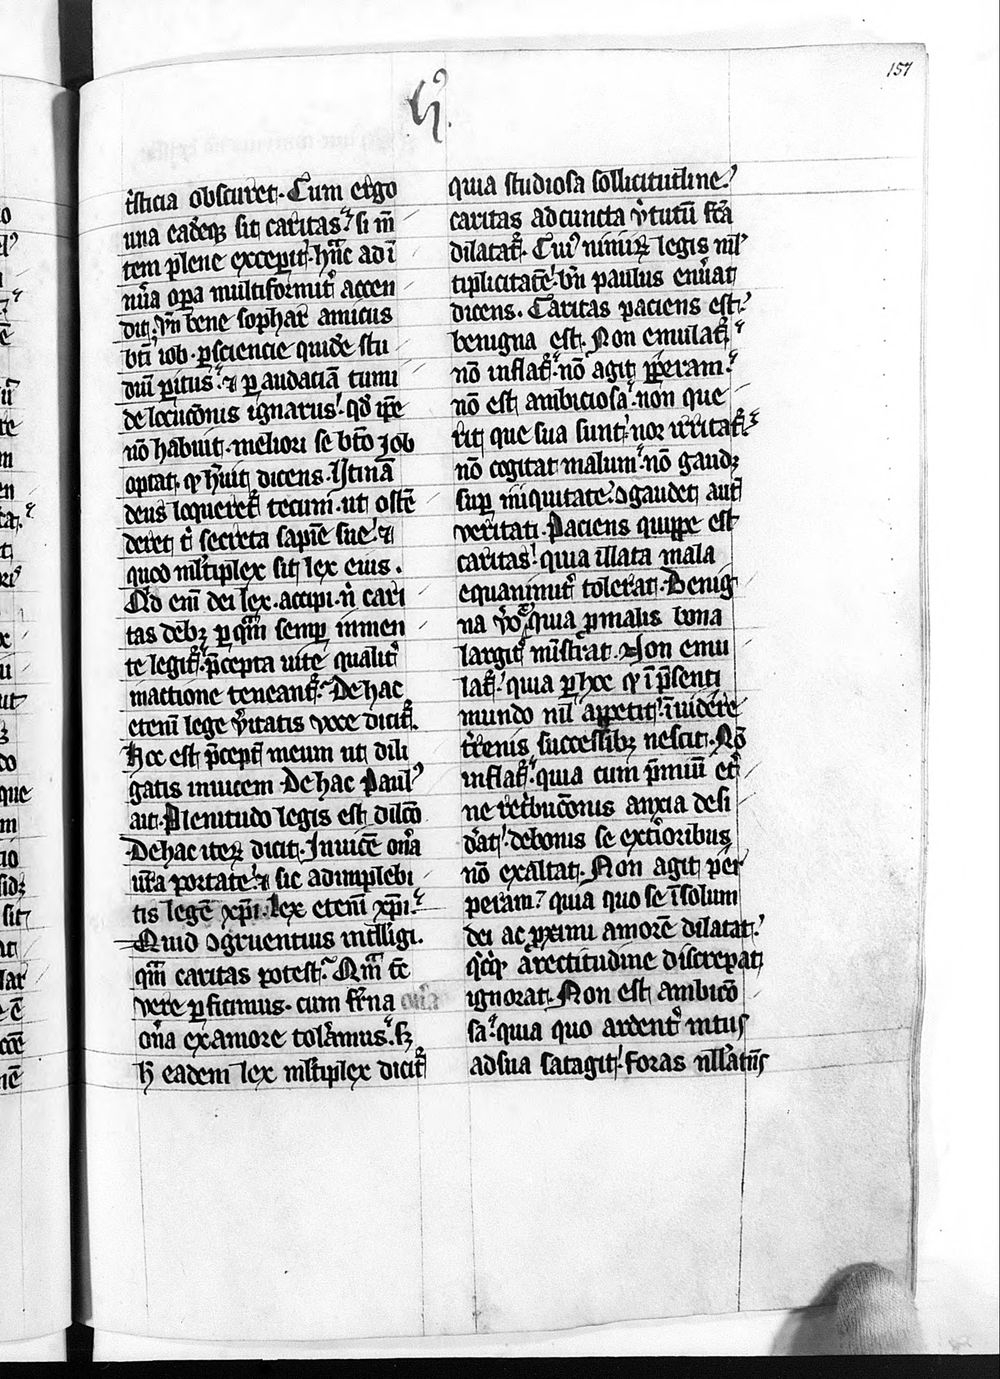 157
tͥsticia obscuret. Cum ergo
una eadēq; sit caritas? si m̄
tem plene exceperit. hc̄ ad ī
nūa opa multiformit᷑ accen
dit. Vn̄ bene sophar amicus
bt̄i iob. p̱sciencie quidē stu
diū p̱itus? ⁊ p̱ audatiā tumi
de locuc̄onis ignarus! qd̄ ip̄e
nō habuit. meliori se bt̄o Job
optat. qͥ h̄uit dicens. Utinā
deus loqueret᷑ tecum. ut ostē
deret tͥ secreta sapīe sue! ⁊
quod ml̄tiplex sit lex eius.
Qd̄ em̄ dei lex. accipi. nͥ cari
tas deb; p̱ qm̄ semp̱ in men
te legit᷑. p̄cepta uite qualit᷑
in actione teneant᷑. De hac
eteni lege v̾itatis voce dicit᷑.
Hoc est p̄cept̄ meum ut dili
gatis inuicem. De hac Paul᷒
ait. Plenitudo legis est dilc̄o
De hac iteꝝ dicit. Inuicē on̾a
ur̄a portate! ⁊ sic adimplebi
tis legē xp̄i. Lex etenī xp̄i?
Quid ɔgruentius intelligi.
qm̄ caritas potest? Qm̄ tc̄
vere p̱ficimus. cum fr̄na
on̾a ex amore tol̾amus? s;
h̄ eadem lex ml̄tiplex dicit᷑
quia studiosa sollicitudine?
caritas ad cuncta v̾tutū fc̄a
dilatat᷑. Cui᷒ nimiꝝ legis ml̾
tiplicitatē! bn̄ paulus enūat
dicens. Caritas paciens est?
benigna est. Non emulat᷑?
nō inflat᷑. nō agit p̱peram?
nō est ambiciosa. non que
rit que sua sunt. non irritat᷑?
nō cogitat malum. nō gaud;
sup̱ iniquitate. ɔgaudet aut̄
veritati. Paciens quippe est
caritas! quia illata mala
equanimit᷑ tolerat. Benig
na v̾o, quia p̱ malis bona
largit᷑ mīstrat. Non emu
lat᷑! quia p̱ hoc qͥ ī p̄senti
mundo nil appetit. īuidere
t̾renis successib; nescit. Nō
inflat᷑. quia cum p̄miū et̾
ne retͥbuc̄onis anxia desi
d̾at! de bonis se ext̾ioribus
nō exaltat. Non agit per
peram? quia quo se ī solum
dei ac p̱ximi amorē dilatat?
qͥcqͥ a rectitudine discrepat
ignorat. Non est ambicō
sa? quia quo ardent᷑ intus
ad sua satagit! foras